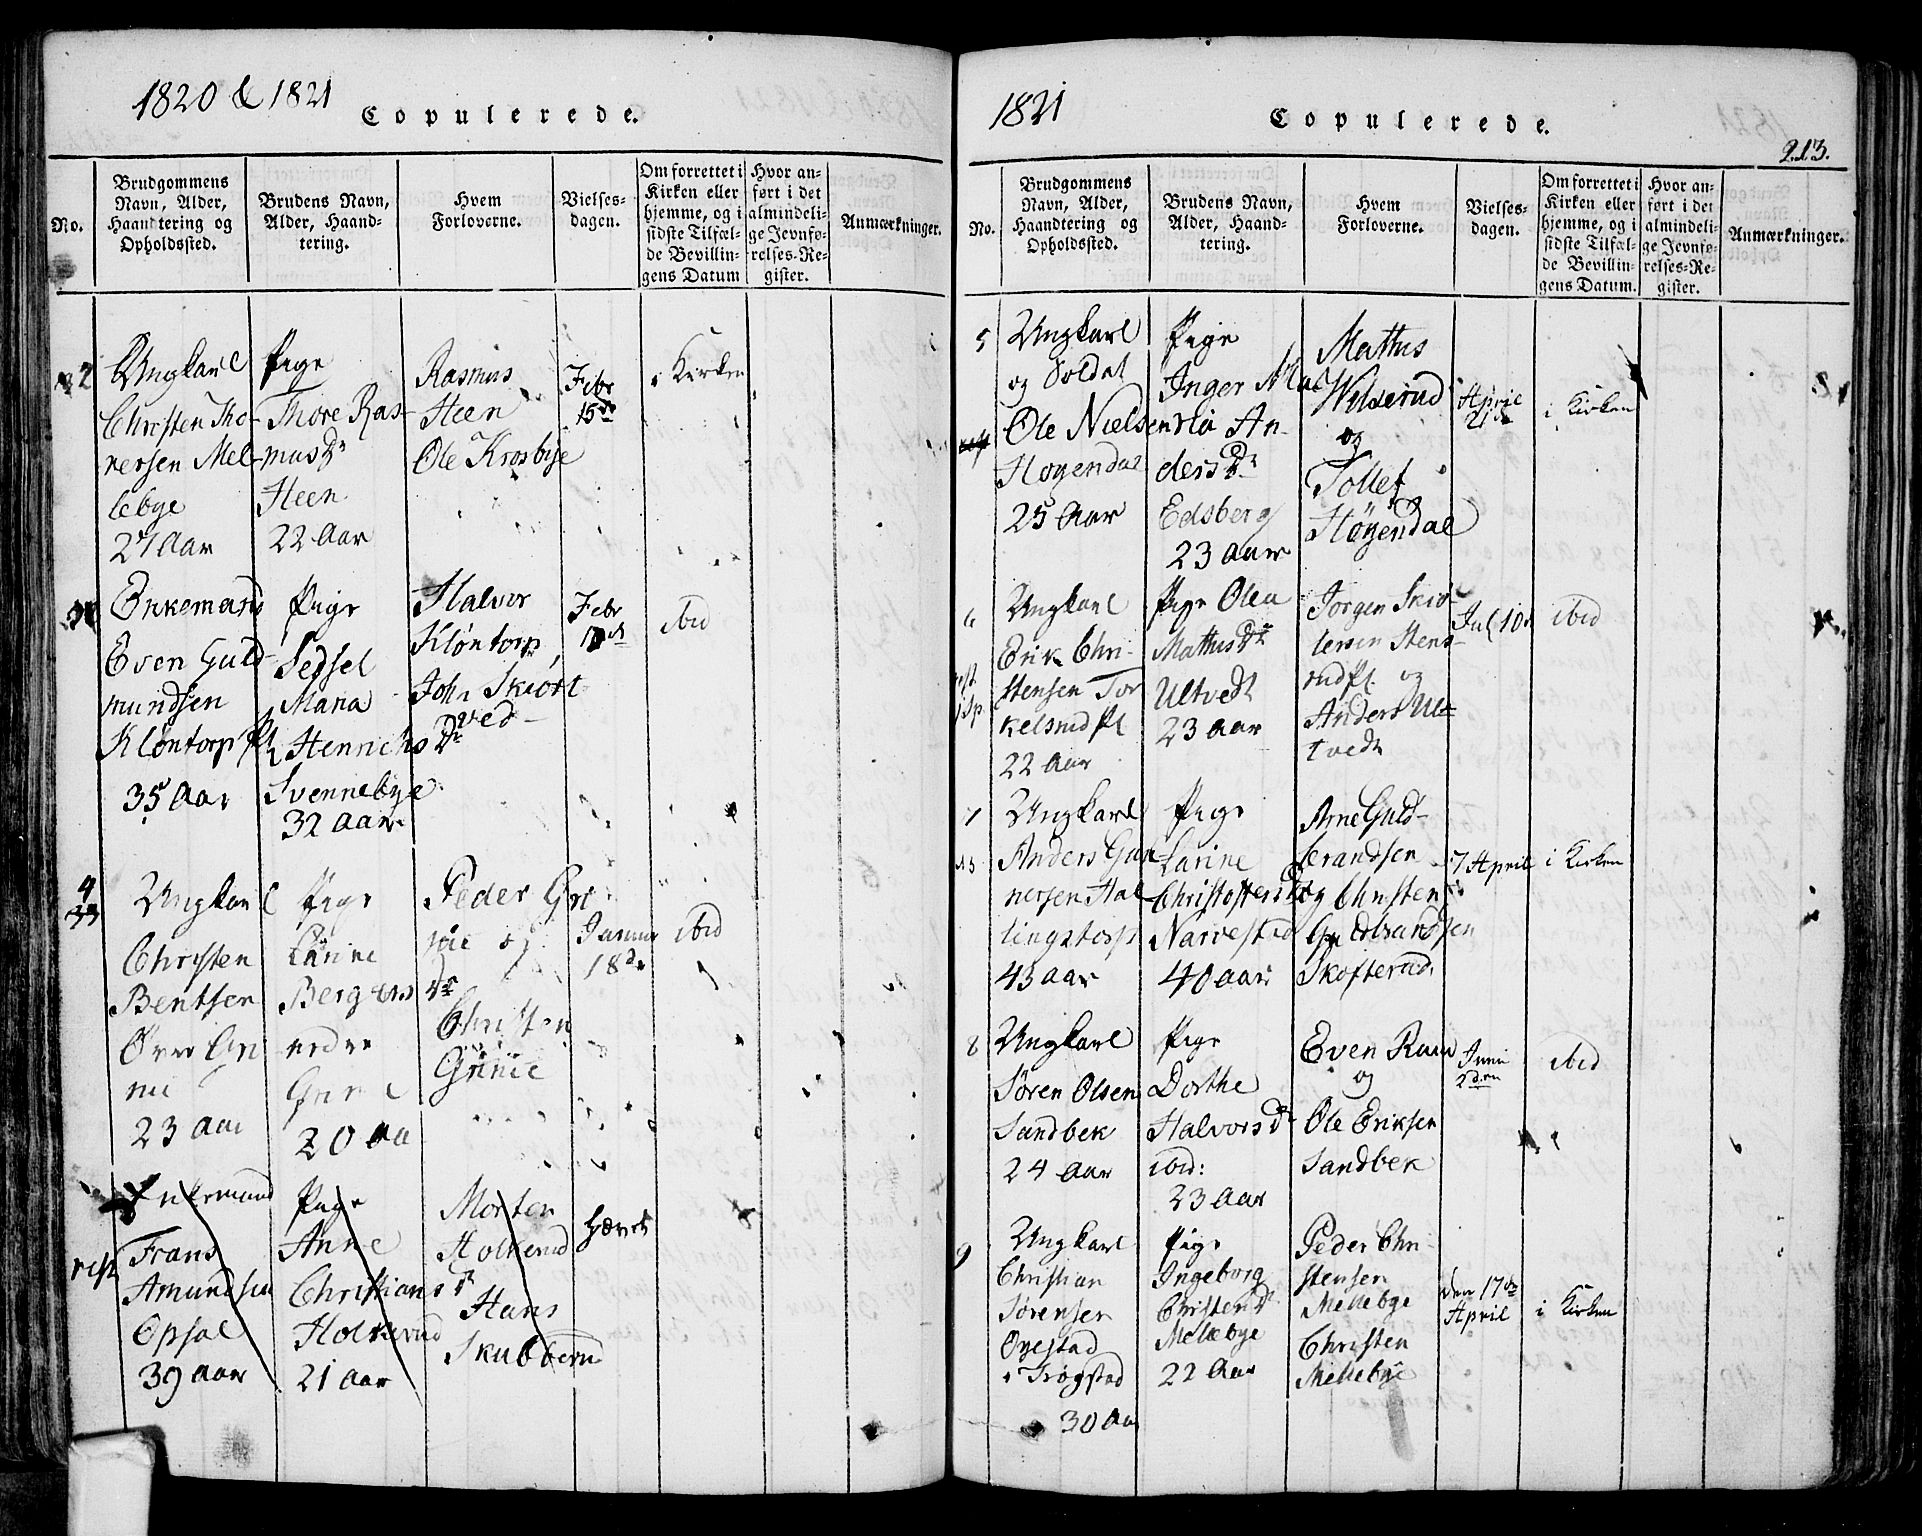 1820 & 1821
Copulerede.
No.
Brudgommens
Navn, Alder,
Haandtering og
Opholdssted.
Brudens Navn,
Alder, Haand-
tering.
Hvem
Forloverne.
Vielses-
dagen.
Om forrettet i
Kirken eller
hjemme, og i
sidste Tilfæl-
de Bevillin-
gens Datum
Hvor an-
ført i det
almindeli-
ge Jevnfø-
relses-Re-
gister.
Anmærkninger.
2
Ungkarl
Christen Tho-
rersen Mel-
lebye
27 Aar
Pige
Thore Ras-
musdr
Heen
22 Aar
Rasmus
Heen
Ole Krosbye
Febr
15de
i Kirken
Enkemand
Even Guld-
mundsen
Kløntorp Pl
35 Aar
Pige
Sedsel
Maria
Henrichsdr
Svennebye
32 aar
Halvor
Kløntorp
John Skiørt
ved
Febr
ibid
4
Ungkarl
Christen
Bentsen
Øvre Gri
nie
23 aar
Pige
Larine
Bergersdr
nedre
Grinie
20 aa
Peder Gri
nie og
Christen
Grinie
Januar
18de
ibid
rest
Enkemand
Frans
Amundsen
Opsal
39 aar
Pige
Anne
Christiansdr
Holkerud
21 aar
Morten
Holkerud
Hans
Skubberud
hævet
1821
Copulerede.
213.
No.
Brudgommens
Navn, Alder,
Haandtering og
Opholdssted.
Brudens Navn,
Alder, Haand-
tering.
Hvem
Forloverne.
Vielses-
dagen.
Om forrettet i
Kirken eller
hjemme, og i
sidste Tilfæl-
de Bevillin-
gens Datum.
Hvor an-
ført i det
almindeli-
ge Jevnfø-
relses-Re-
gister.
Anmærkninger.
5
Ungkarl
og Soldat
Ole Nielsen
Høyendal
25 Aar
Pige
Inger Ma
ria An-
dersdr
Edsberg
23 aar
Mathis
Wilserud
og
Tollef
Høyendal
April
21de
i Kirken
6
Ungkarl
Erik Chri-
stensen Tor
kelsrud Pl
22 Aar
Pige Olea
Mathisdr
Ultvedt
23 aar
Jørgen Skio-
lersen Stens-
rud Pl. og
Anders Ul-
tvedt
Jul 10d
ibid
7
Ungkarl
Anders Gun-
nersen Hal
lingstorp
43 aar
Pige
Larine
Christoffersdr
Narvestad
40 aar
Arne Guld-
brandsen
og Christen
Guldbrandsen
Skofterud.
7 April
i Kirken
8
Ungkarl
Søren Olsen
Sandbek
24 Aar
Pige
Dorthe
Halvorsdr
ibid:
23 Aar
Even Ruud
og
Ole Eriksen
Sandbek
Juni
2den
ibid
9
Ungkarl
Christian
Sørensen
Orestad
i Trøgstad
30 Aar
Pige
Ingeborg
Christensdr
Mellebye
22 Aar
Peder Chri-
stensen
Mellebye
Christen
Mellebye
den 17de
April
i Kirken